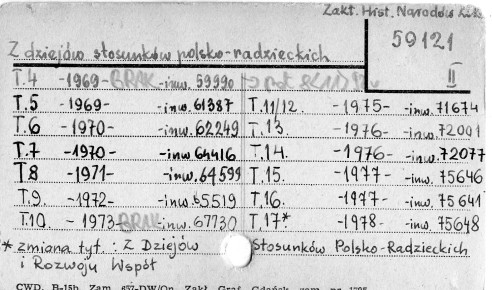 Zakt. Hist. Narodów
59121
II
Z dziejów stosunków polsko-radzieckich
T.4 -1969- BRAK -inw. 59990
T.5 -1969- -inw. 61387 T.11/12. -1975- -inw. 71674
T.6 -1970- -inw. 62249 T.13. -1976- -inw. 72001
T.7 -1970- -inw. 64416 T.14. -1976- -inw. 72077
T.8 -1971- -inw. 64599 T.15. -1977- -inw. 75646
T.9. -1972- -inw. 65519 T.16. -1977- -inw. 75641
T.10. -1973- BRAK -inw. 67730 T.17* -1978- -inw. 75648
* zmiana tyt.: Z Dziejów Stosunków Polsko-Radzieckich
i Rozwoju Współ
CWD. B-15b Zam. 657-DW/Op. Zakł. Graf. Gdańsk